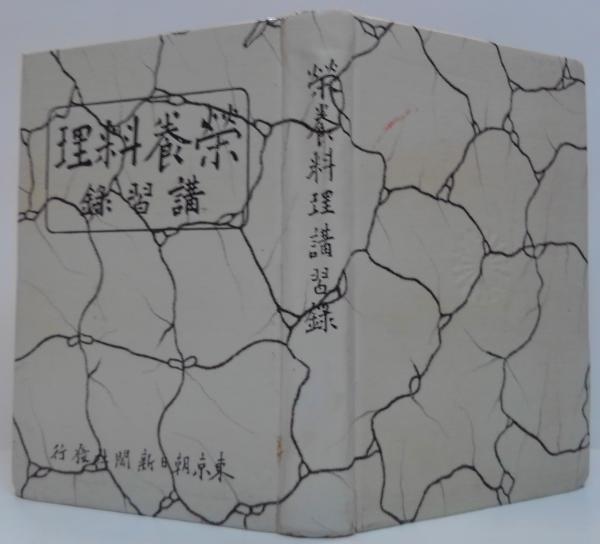 榮養料理
講習錄
東京朝日新聞社發行
榮養料理講習錄